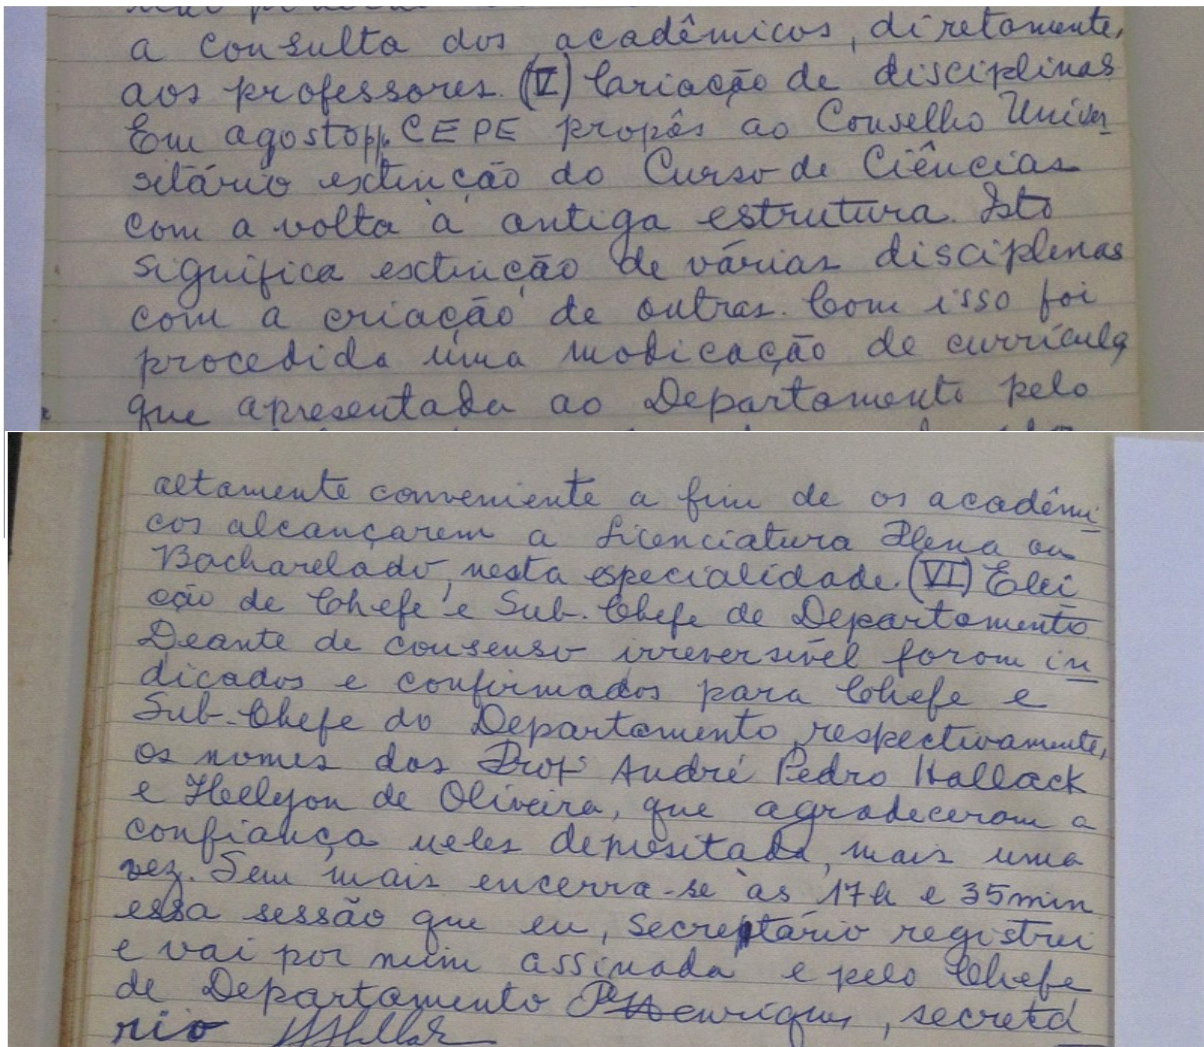 a consulta dos acadêmicos, diretamente,
aos professores. (V) Criação de disciplinas
Em agosto pp. CEPE propôs ao Conselho Univer
sitário extinção do Curso de Ciências
com a volta à antiga estrutura. Isto
significa extinção de várias disciplinas
com a criação de outras. Com isso foi
procedida uma modicação de currículo
que apresentada ao Departamento pelo
altamente conveniente a fim de os acadêmi
cos alcançarem a Licenciatura Plena ou
Bacharelado, nesta especialidade. (VI) Elei
ção de Chefe e Sub-Chefe de Departamento
Deante de consenso irreversível foram in
dicados e confirmados para Chefe e
Sub-Chefe do Departamento, respectivamente,
os nomes dos Prof. André Pedro Hallack
e Hellyon de Oliveira, que agradeceram a
confiança neles depositada, mais uma
vez. Sem mais encerra-se às 17h e 35min
essa sessão que eu, secretário registrei
e vai por mim assinada e pelo Chefe
de Departamento Henriques, secretá
rio